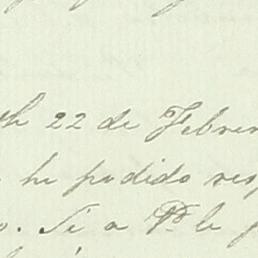 th 22 de Febrer
he podido res
o. Si a Pd. le